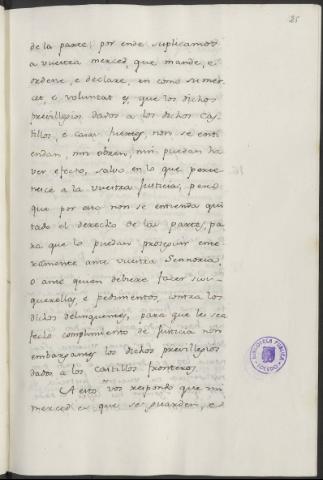 25
de la parte; por ende suplicamos
a vuestra merced, que mande, e
ordene, e declare, en como su mer-
cet, e voluntat es, que los dichos
previllegios dados a los dichos Cas-
tillos, e casas fuertes, non se enti-
endan, nin obren, nin puedan ha-
ver efecto, salvo en lo que perte-
nesce a la vuestra Justicia; pero
que por esto non se entienda qui-
tado el derecho de las partes, pa-
ra que lo puedan proseguir
ante vuestra Sennoria,
o ante quien debiere facer sus
querellas, e pedimentos contra los
dichos delinquentes, para que les sea
fecho complimiento de Justicia non
embargantes los dichos previllegios
dados a los Castillos fronteros.
A esto vos respondo que mi
merced es que se guarden, e
BIBLIOTECA PUBLICA
TOLEDO